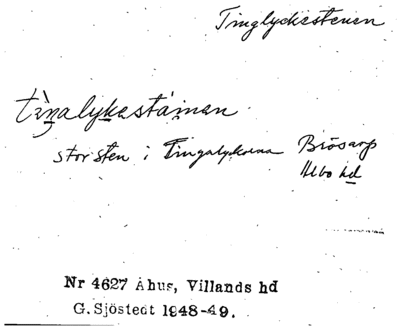 Tinglyckestenen
tìŋalykastáinan
stor sten i Tingalyckorna Brösarp
Albo hd
Nr 4627 Åhus, Villands hd
G. Sjöstedt 1948-49.